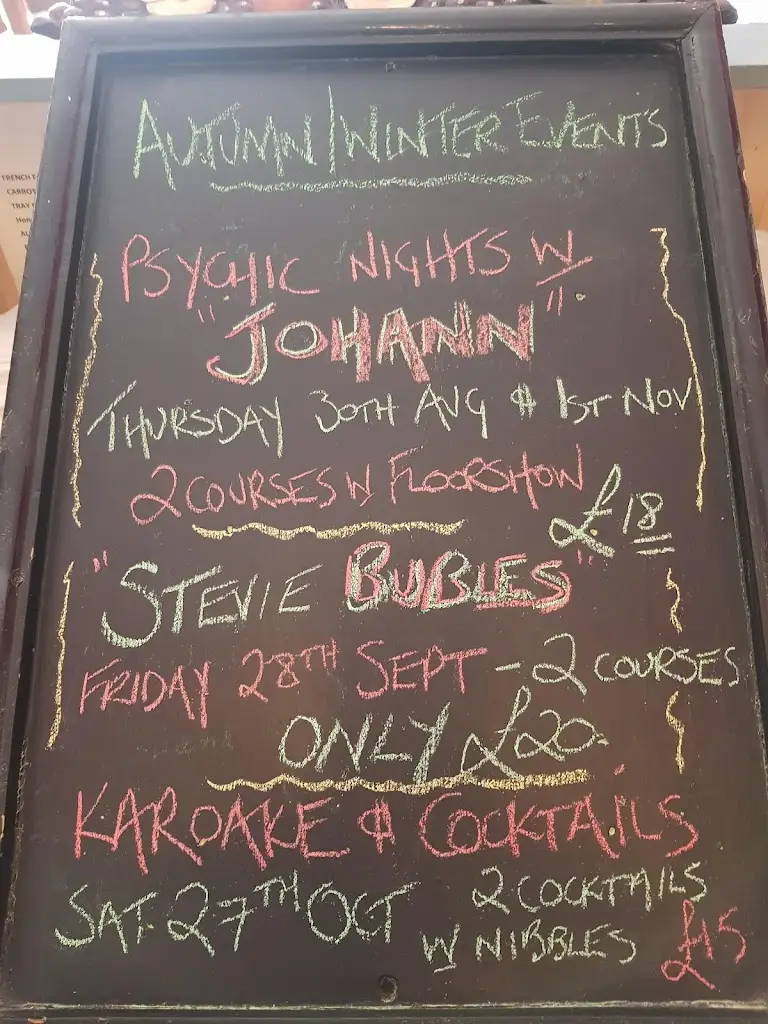 AUTUMN/WINTER EVENTS
PSYCHIC NIGHTS W/
"JOHANN"
THURSDAY 30TH AUG & 1ST NOV
2 COURSES W FLOORSHOW
£18
"STEVIE BUBLES"
FRIDAY 28TH SEPT - 2 COURSES
ONLY £20
KAROAKE & COCKTAILS
SAT 27TH OCT 2 COCKTAILS
W NIBBLES £15
TRENCH
CARROT
TRAY